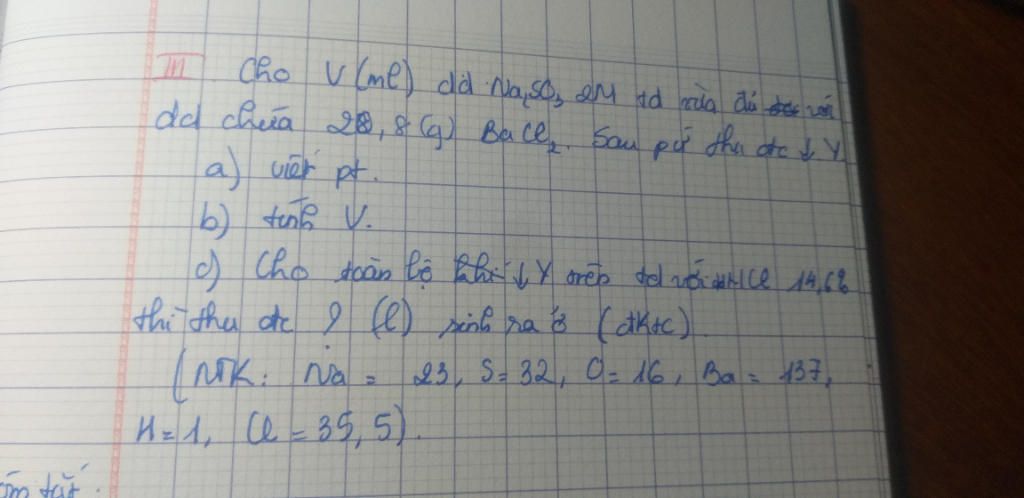 III Cho V (ml) dd Na2SO3 2M td vừa đủ với
dd chứa 20,8 (g) BaCl2. Sau pứ thu đc ↓ Y
a) viết pt.
b) tính V.
c) Cho toàn bộ ↓ Y trên td với HCl 14,6%
thì thu đc ? (l) sinh ra ở (đktc)
(NTK: Na = 23, S = 32, O = 16, Ba = 137,
H = 1, Cl = 35,5).
tóm tắt: